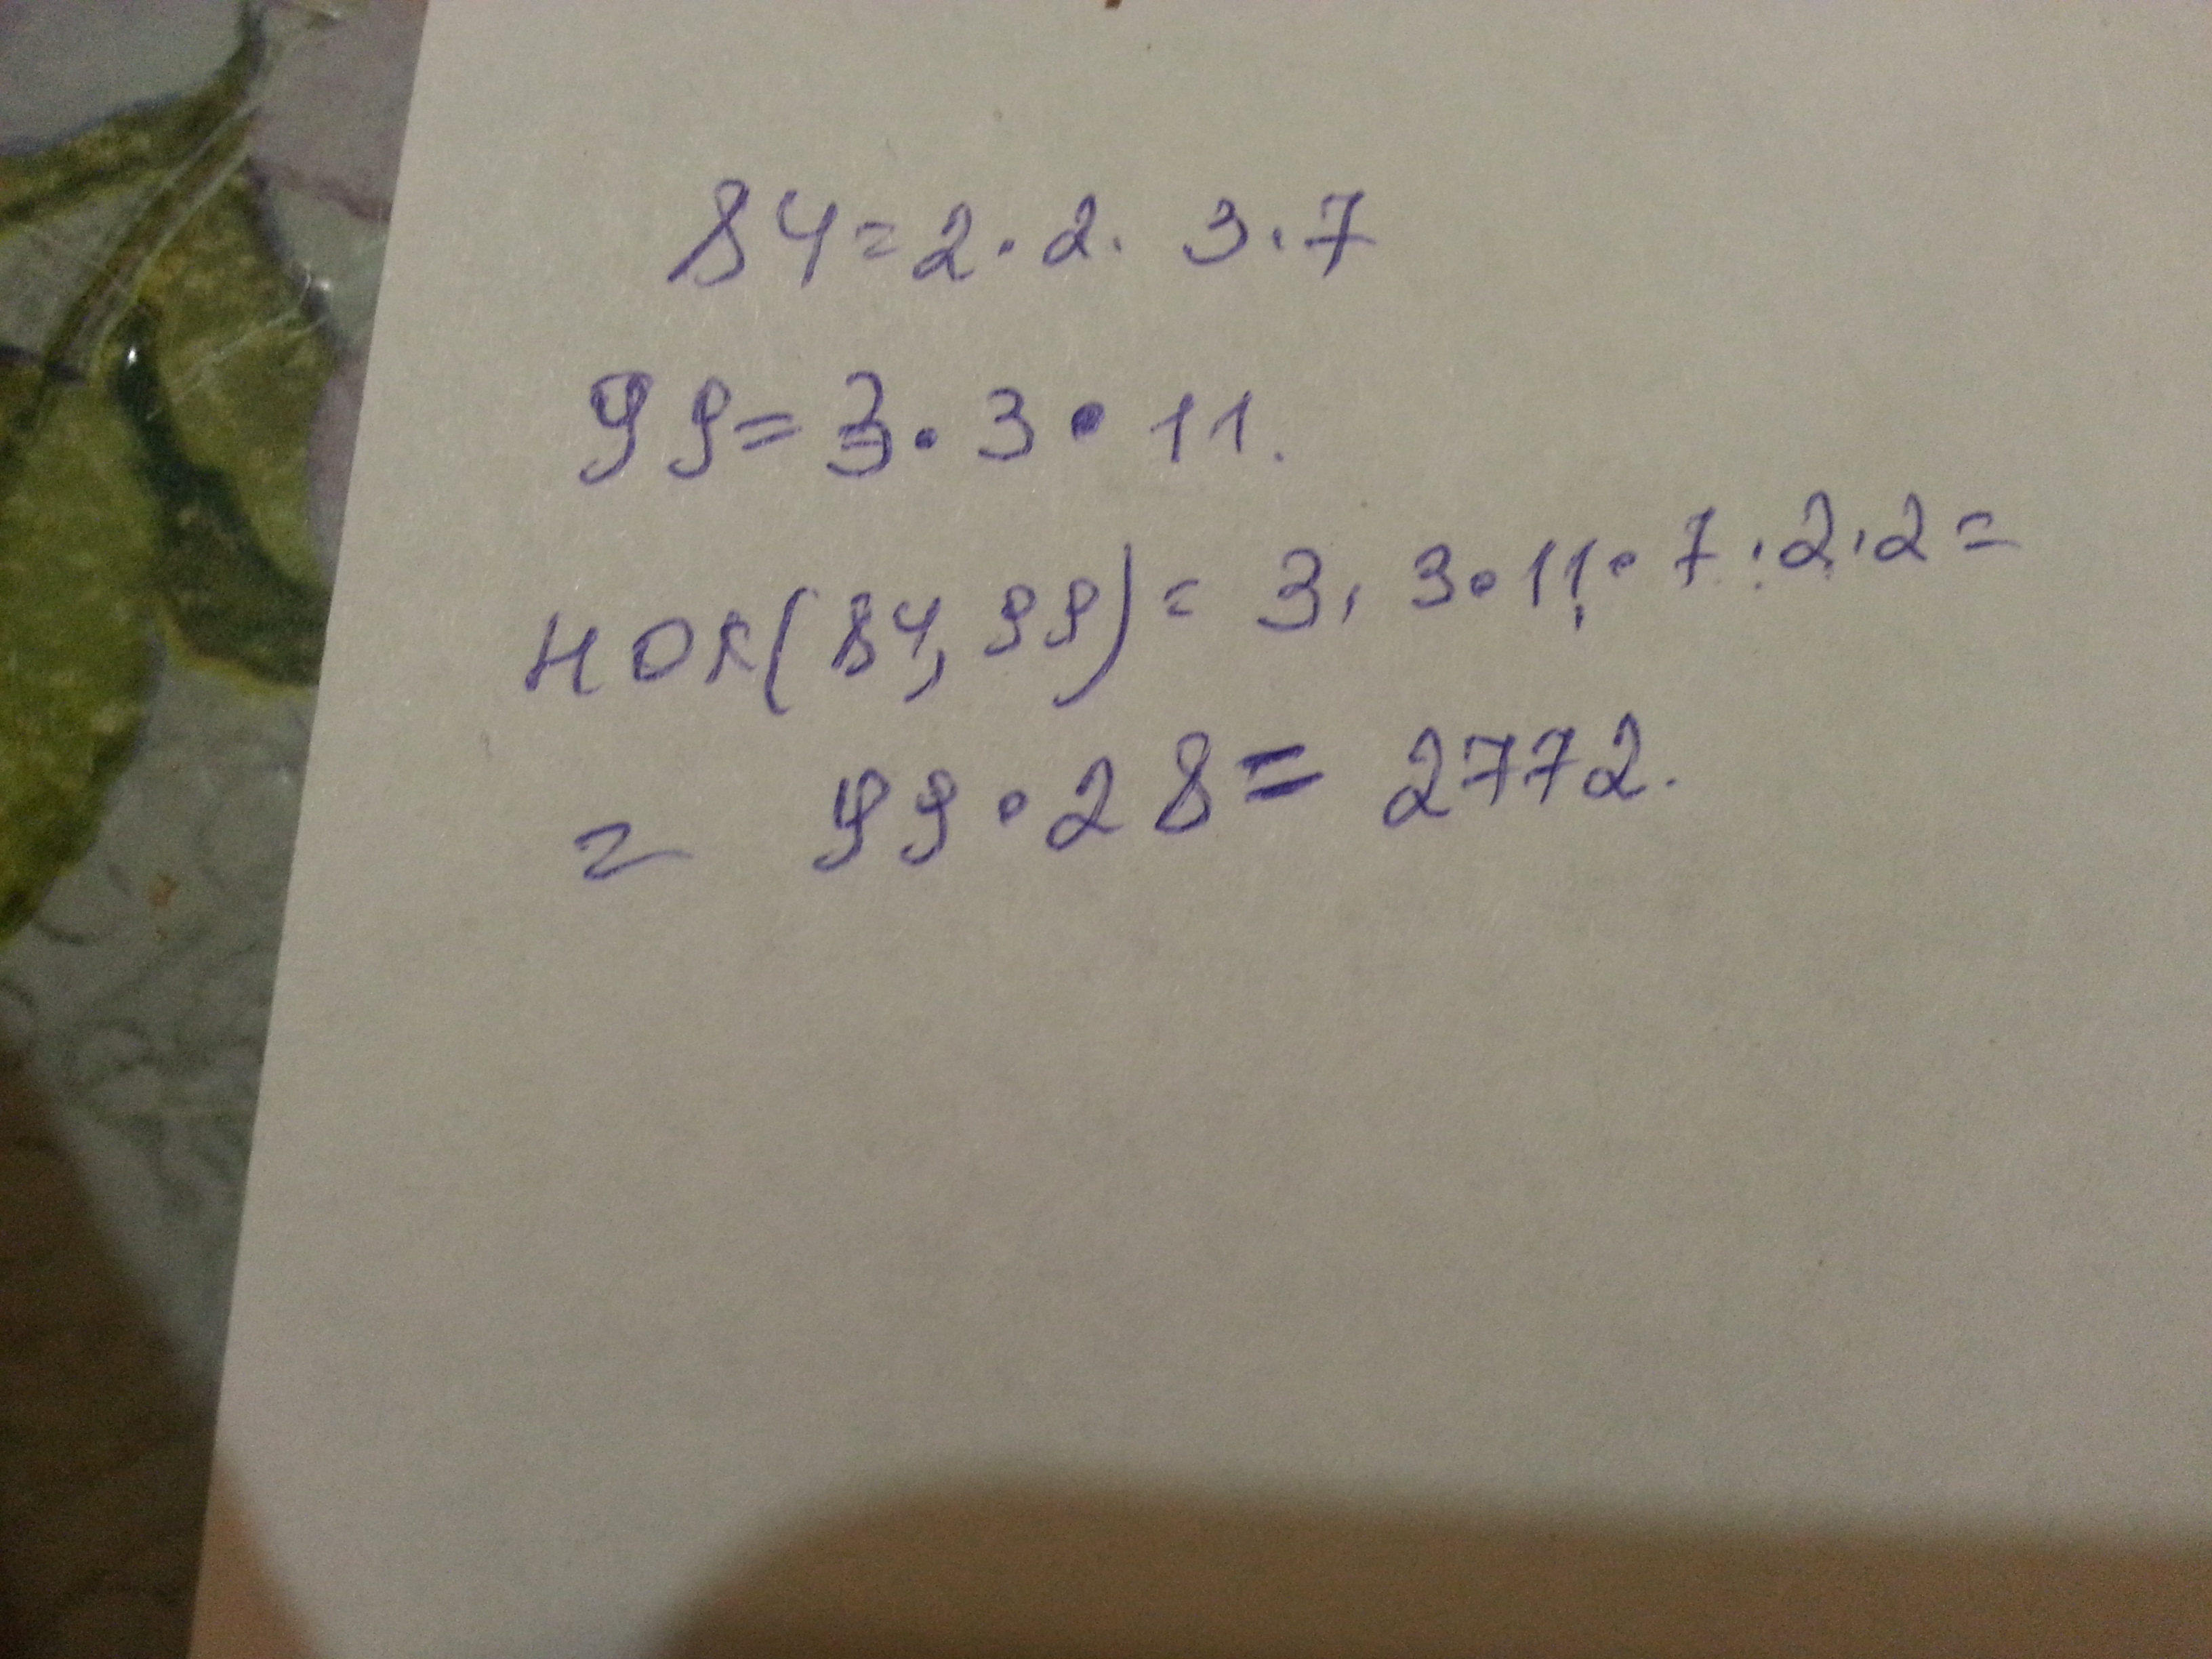 84=2·2·3·7
99=3·3·11.
НОК(84,99)=3·3·11·7·2·2=
=99·28=2772.